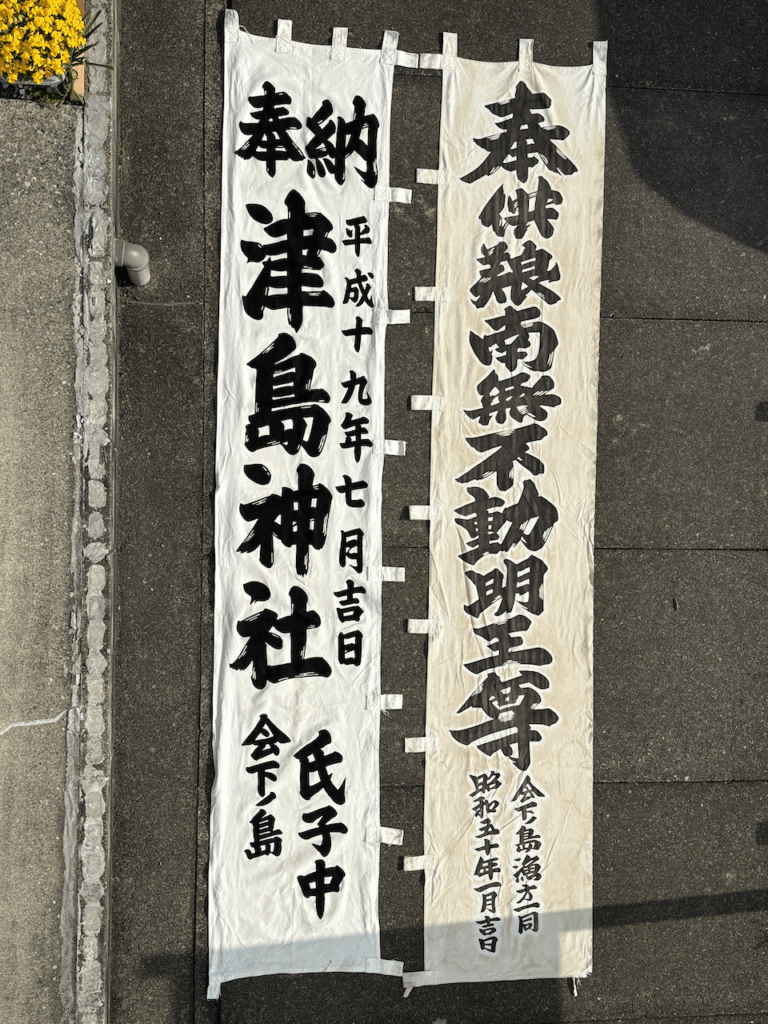 奉供養南無不動明王尊
会下ノ島漁方一同
昭和五十年一月吉日
奉納
平成十九年七月吉日
津島神社
氏子中
会下ノ島